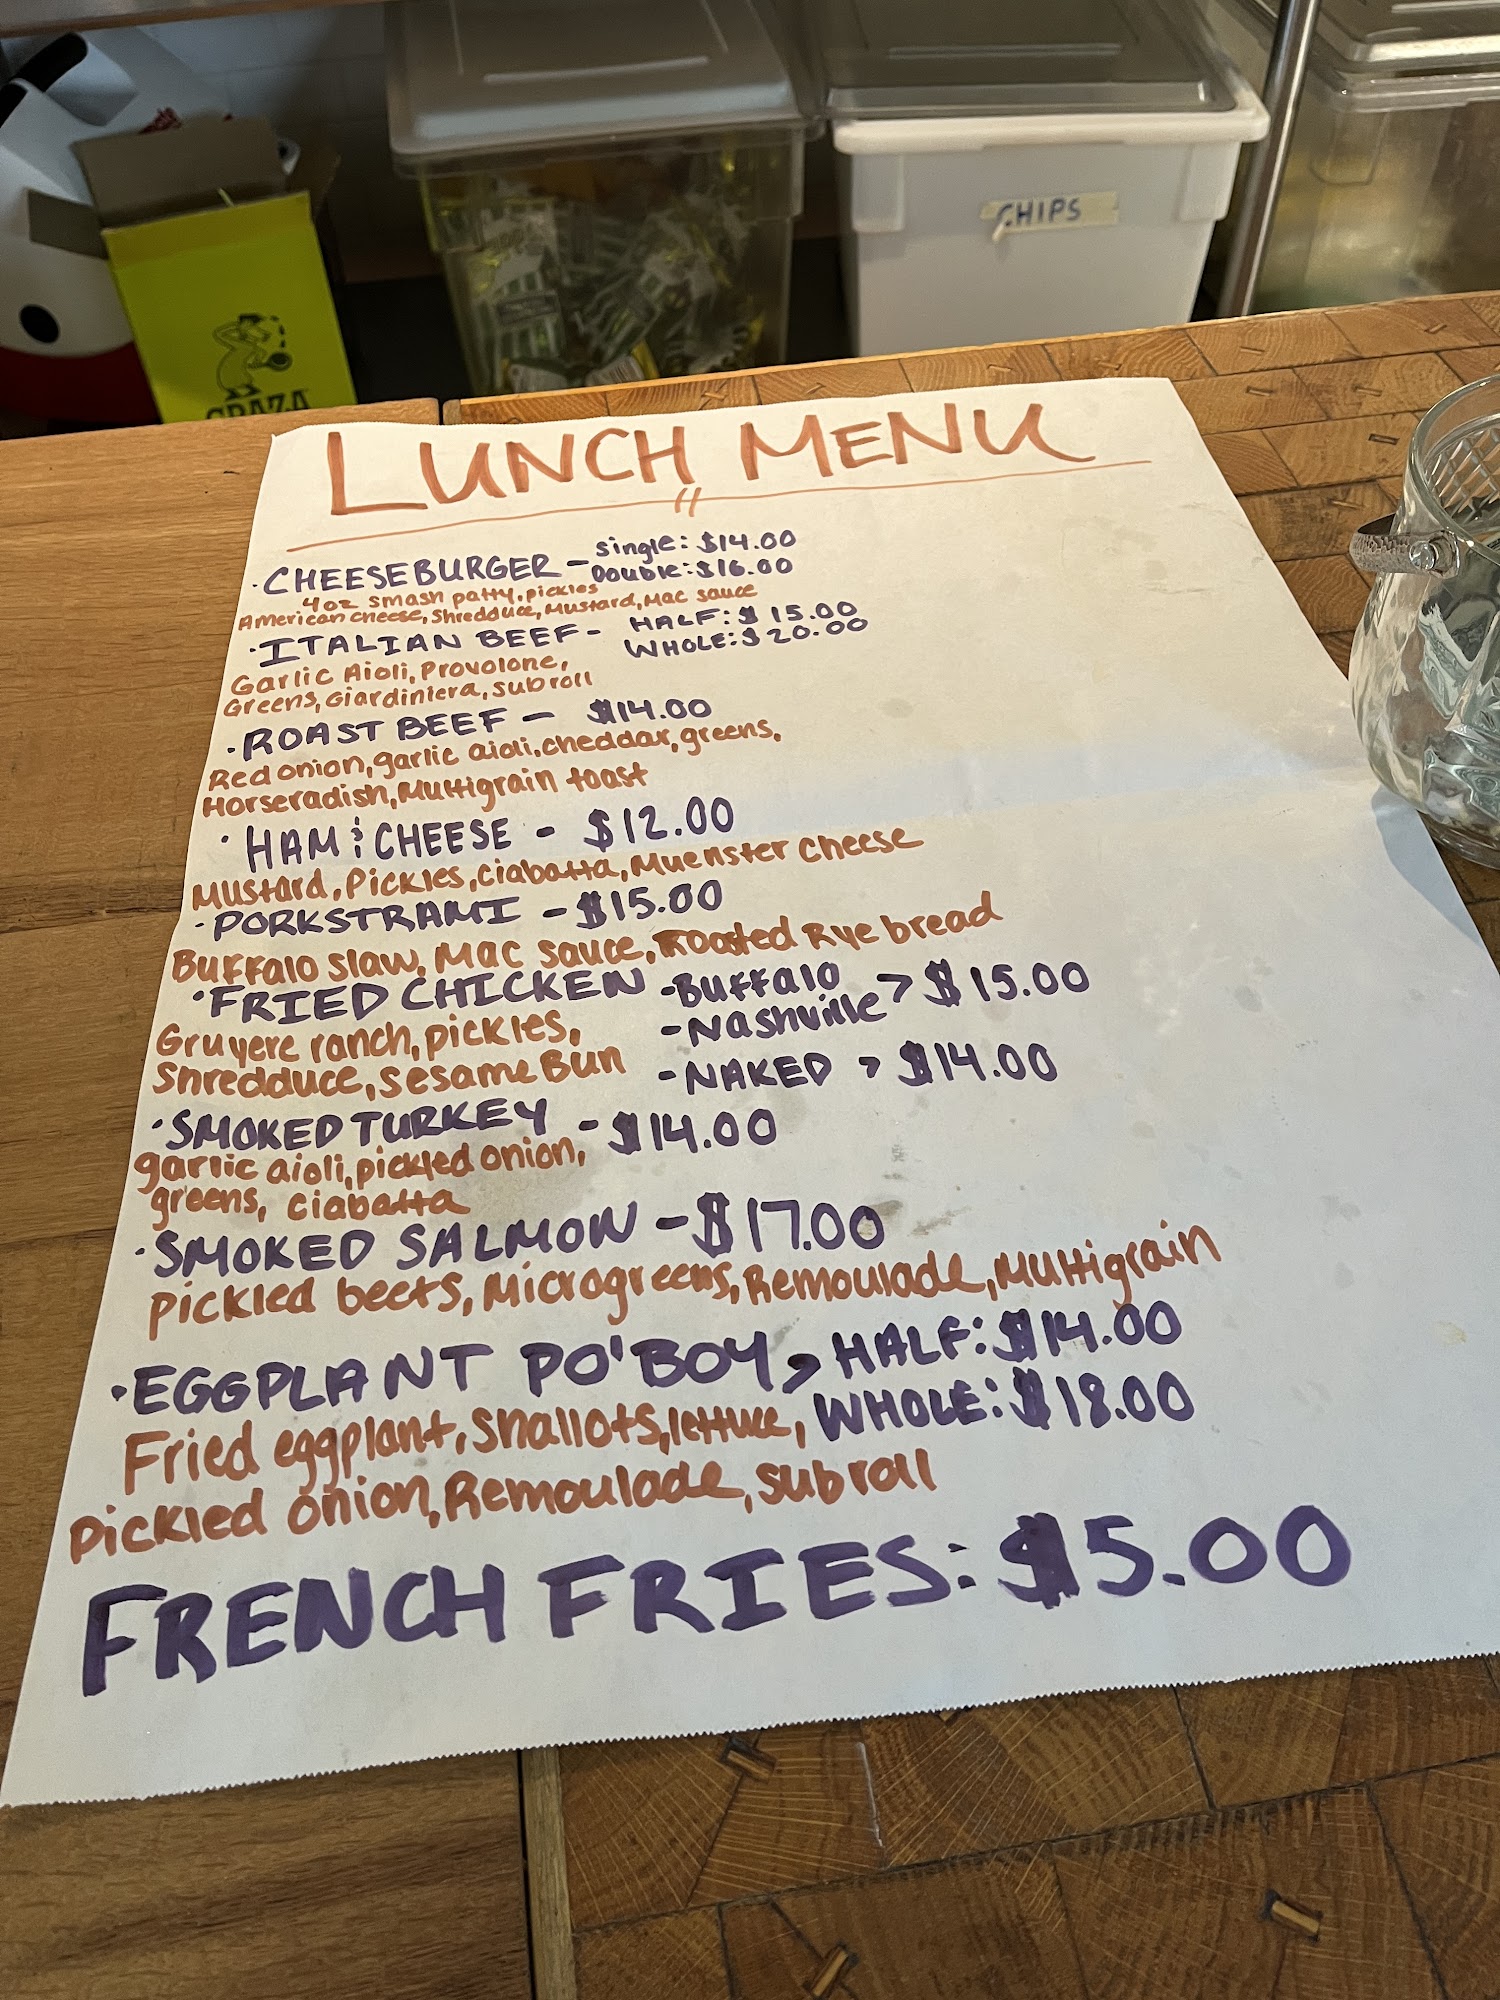 CHIPS
GRAZA
LUNCH MENU
· CHEESEBURGER - Single: $14.00
Double: $16.00
4oz smash patty, pickles
American cheese, Shredduce, Mustard, Mac sauce
· ITALIAN BEEF - HALF: $15.00
WHOLE: $20.00
Garlic Aioli, Provolone,
Greens, Giardiniera, sub roll
· ROAST BEEF - $14.00
Red onion, garlic aioli, cheddar, greens,
Horseradish, Multigrain toast
· HAM & CHEESE - $12.00
Mustard, Pickles, ciabatta, Muenster cheese
· PORKSTRAMI - $15.00
Buffalo slaw, Mac sauce, Roasted Rye bread
· FRIED CHICKEN - Buffalo
- Nashville > $15.00
Gruyere ranch, pickles,
Shredduce, Sesame Bun - NAKED > $14.00
· SMOKED TURKEY - $14.00
garlic aioli, pickled onion,
greens, ciabatta
· SMOKED SALMON - $17.00
pickled beets, Microgreens, Remoulade, Multigrain
· EGGPLANT PO'BOY > HALF: $14.00
Fried eggplant, Shallots, lettuce, WHOLE: $18.00
pickled onion, Remoulade, sub roll
FRENCH FRIES: $5.00